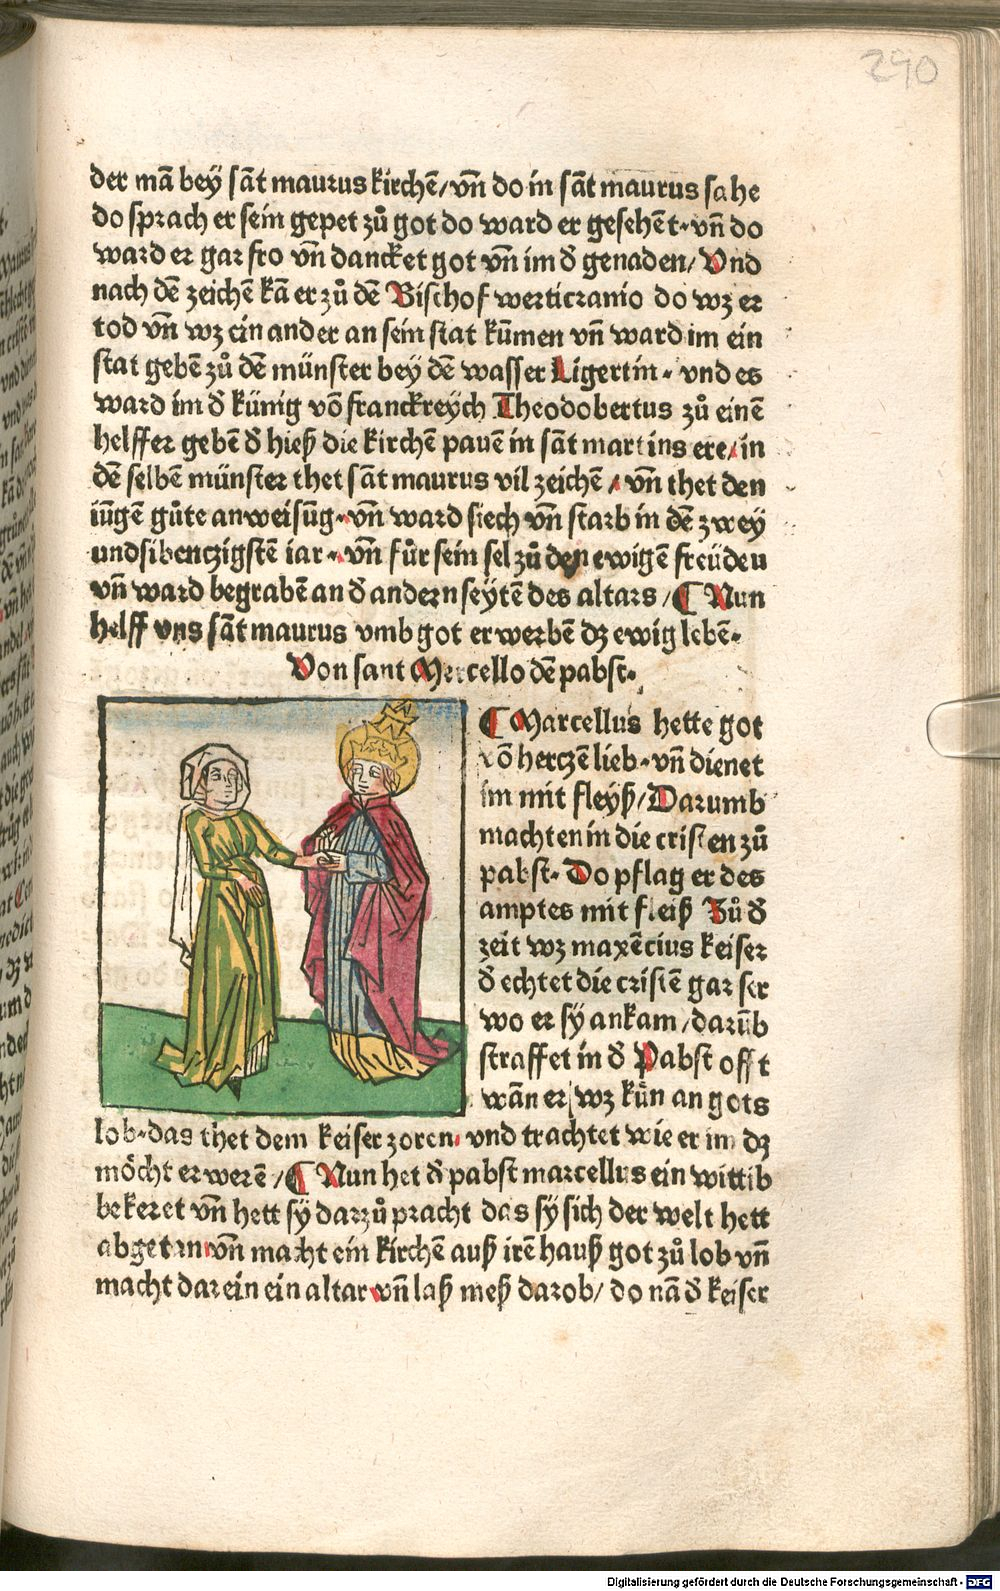 290
der mā bey̆ sāt maurus kirchē/ vn̄ do in sāt maurus sahe
do sprach er sein gepet zů got do ward er gesehēt· vn̄ do
ward er gar fro vn̄ dancket got vn̄ im đ genaden/ Vnd
nach dē zeichē kā er zů dē Bischof werticranio do wz er
tod vn̄ wz ein ander an sein stat kūmen vn̄ ward im ein
stat gebē zů dē münster bey dē wasser Ligertin· vnd es
ward im đ künig vō franckreych Theodobertus zů einē
helffer gebē đ hieß die kirchē pauē in sāt martins ere/ in
dē selbē münster thet sāt maurus vil zeichē/ vn̄ thet den
iūgē gůte anweisūg· vn̄ ward siech vn̄ starb in dē zwey
undsibenczigstē iar· vn̄ fůr sein sel zů den ewigē freüden
vn̄ ward begrabē an đ andern seytē des altars/ ¶ Nun
helff vns sāt maurus vmb got erwerbē dz ewig lebē·
Von sant Marcello dē pabst·
¶ Marcellus hette got
vō herczē lieb· vn̄ dienet
im mit fleyß/ Darumb
machten in die cristen zů
pabst· Do pflag er des
amptes mit fleiß Zů đ
zeit wz maxēcius keiser
đ echtet die cristē gar ser
wo er sy ankam/ darūb
straffet in đ Pabst offt
wān er wz kün an gots
lob· das thet dem keiser zoren· vnd trachtet wie er im dz
möcht erwerē/ ¶ Nun het đ pabst marcellus ein wittib
bekeret vn̄ hett sy darzů pracht das sy sich der welt hett
abgetan vn̄ macht ein kirchē auß irē hauß got zů lob vn̄
macht darein ein altar vn̄ laß meß darob/ do nā đ keiser
Digitalisierung gefördert durch die Deutsche Forschungsgemeinschaft - DFG